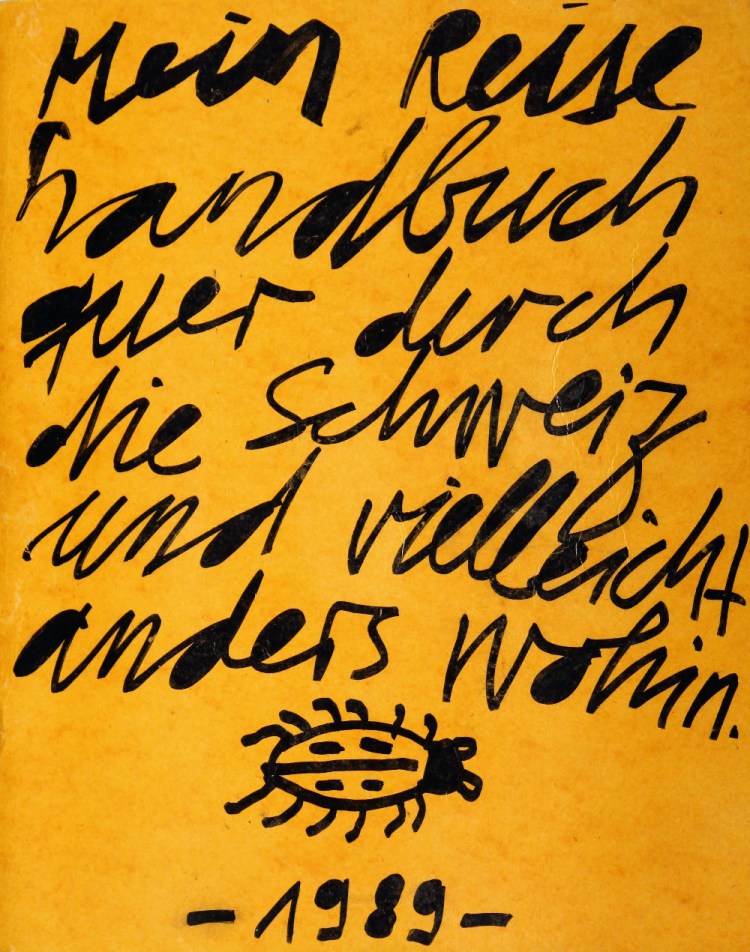 Mein Reise
handbuch
quer durch
die Schweiz
und vielleicht
anders wohin.
- 1989 -